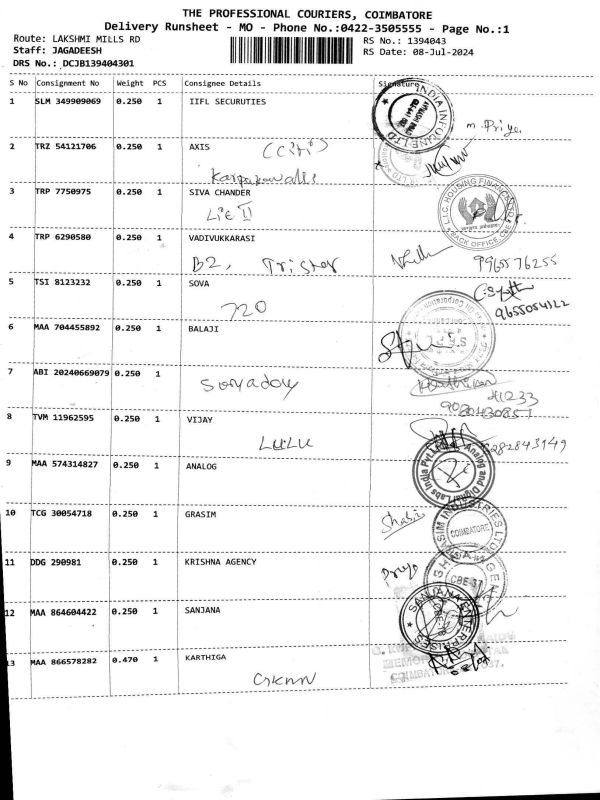 THE PROFESSIONAL COURIERS, COIMBATORE
Delivery Runsheet - MO - Phone No.:0422-3505555 - Page No.:1
Route: LAKSHMI MILLS RD
RS No.: 1394043
Staff: JAGADEESH
RS Date: 08-Jul-2024
DRS No.: DCJB139404301
S No Consignment No Weight PCS Consignee Details Signature
1 SLM 349909069 0.250 1 IIFL SECURUTIES
m. Priya
2 TRZ 54121706 0.250 1 AXIS (Citi)
3 TRP 7750975 0.250 1 SIVA CHANDER
LIC II
L.I.C. HOUSING FINANCE LTD
BACK OFFICE, CBE
4 TRP 6290580 0.250 1 VADIVUKKARASI
B2, Tristar
9965576255
5 TSI 8123232 0.250 1 SOVA
720
9655054322
6 MAA 704455892 0.250 1 BALAJI
7 ABI 20240669079 0.250 1
41233
8 TVM 11962595 0.250 1 VIJAY
LULU
9 MAA 574314827 0.250 1 ANALOG
Analog and Digital Labs India Pvt Ltd
10 TCG 30054718 0.250 1 GRASIM
Shasi
GRASIM INDUSTRIES LTD
COIMBATORE
11 DDG 290981 0.250 1 KRISHNA AGENCY
CBE-37
12 MAA 864604422 0.250 1 SANJANA
SANJANA ENTERPRISES
13 MAA 866578282 0.470 1 KARTHIGA
GKNM